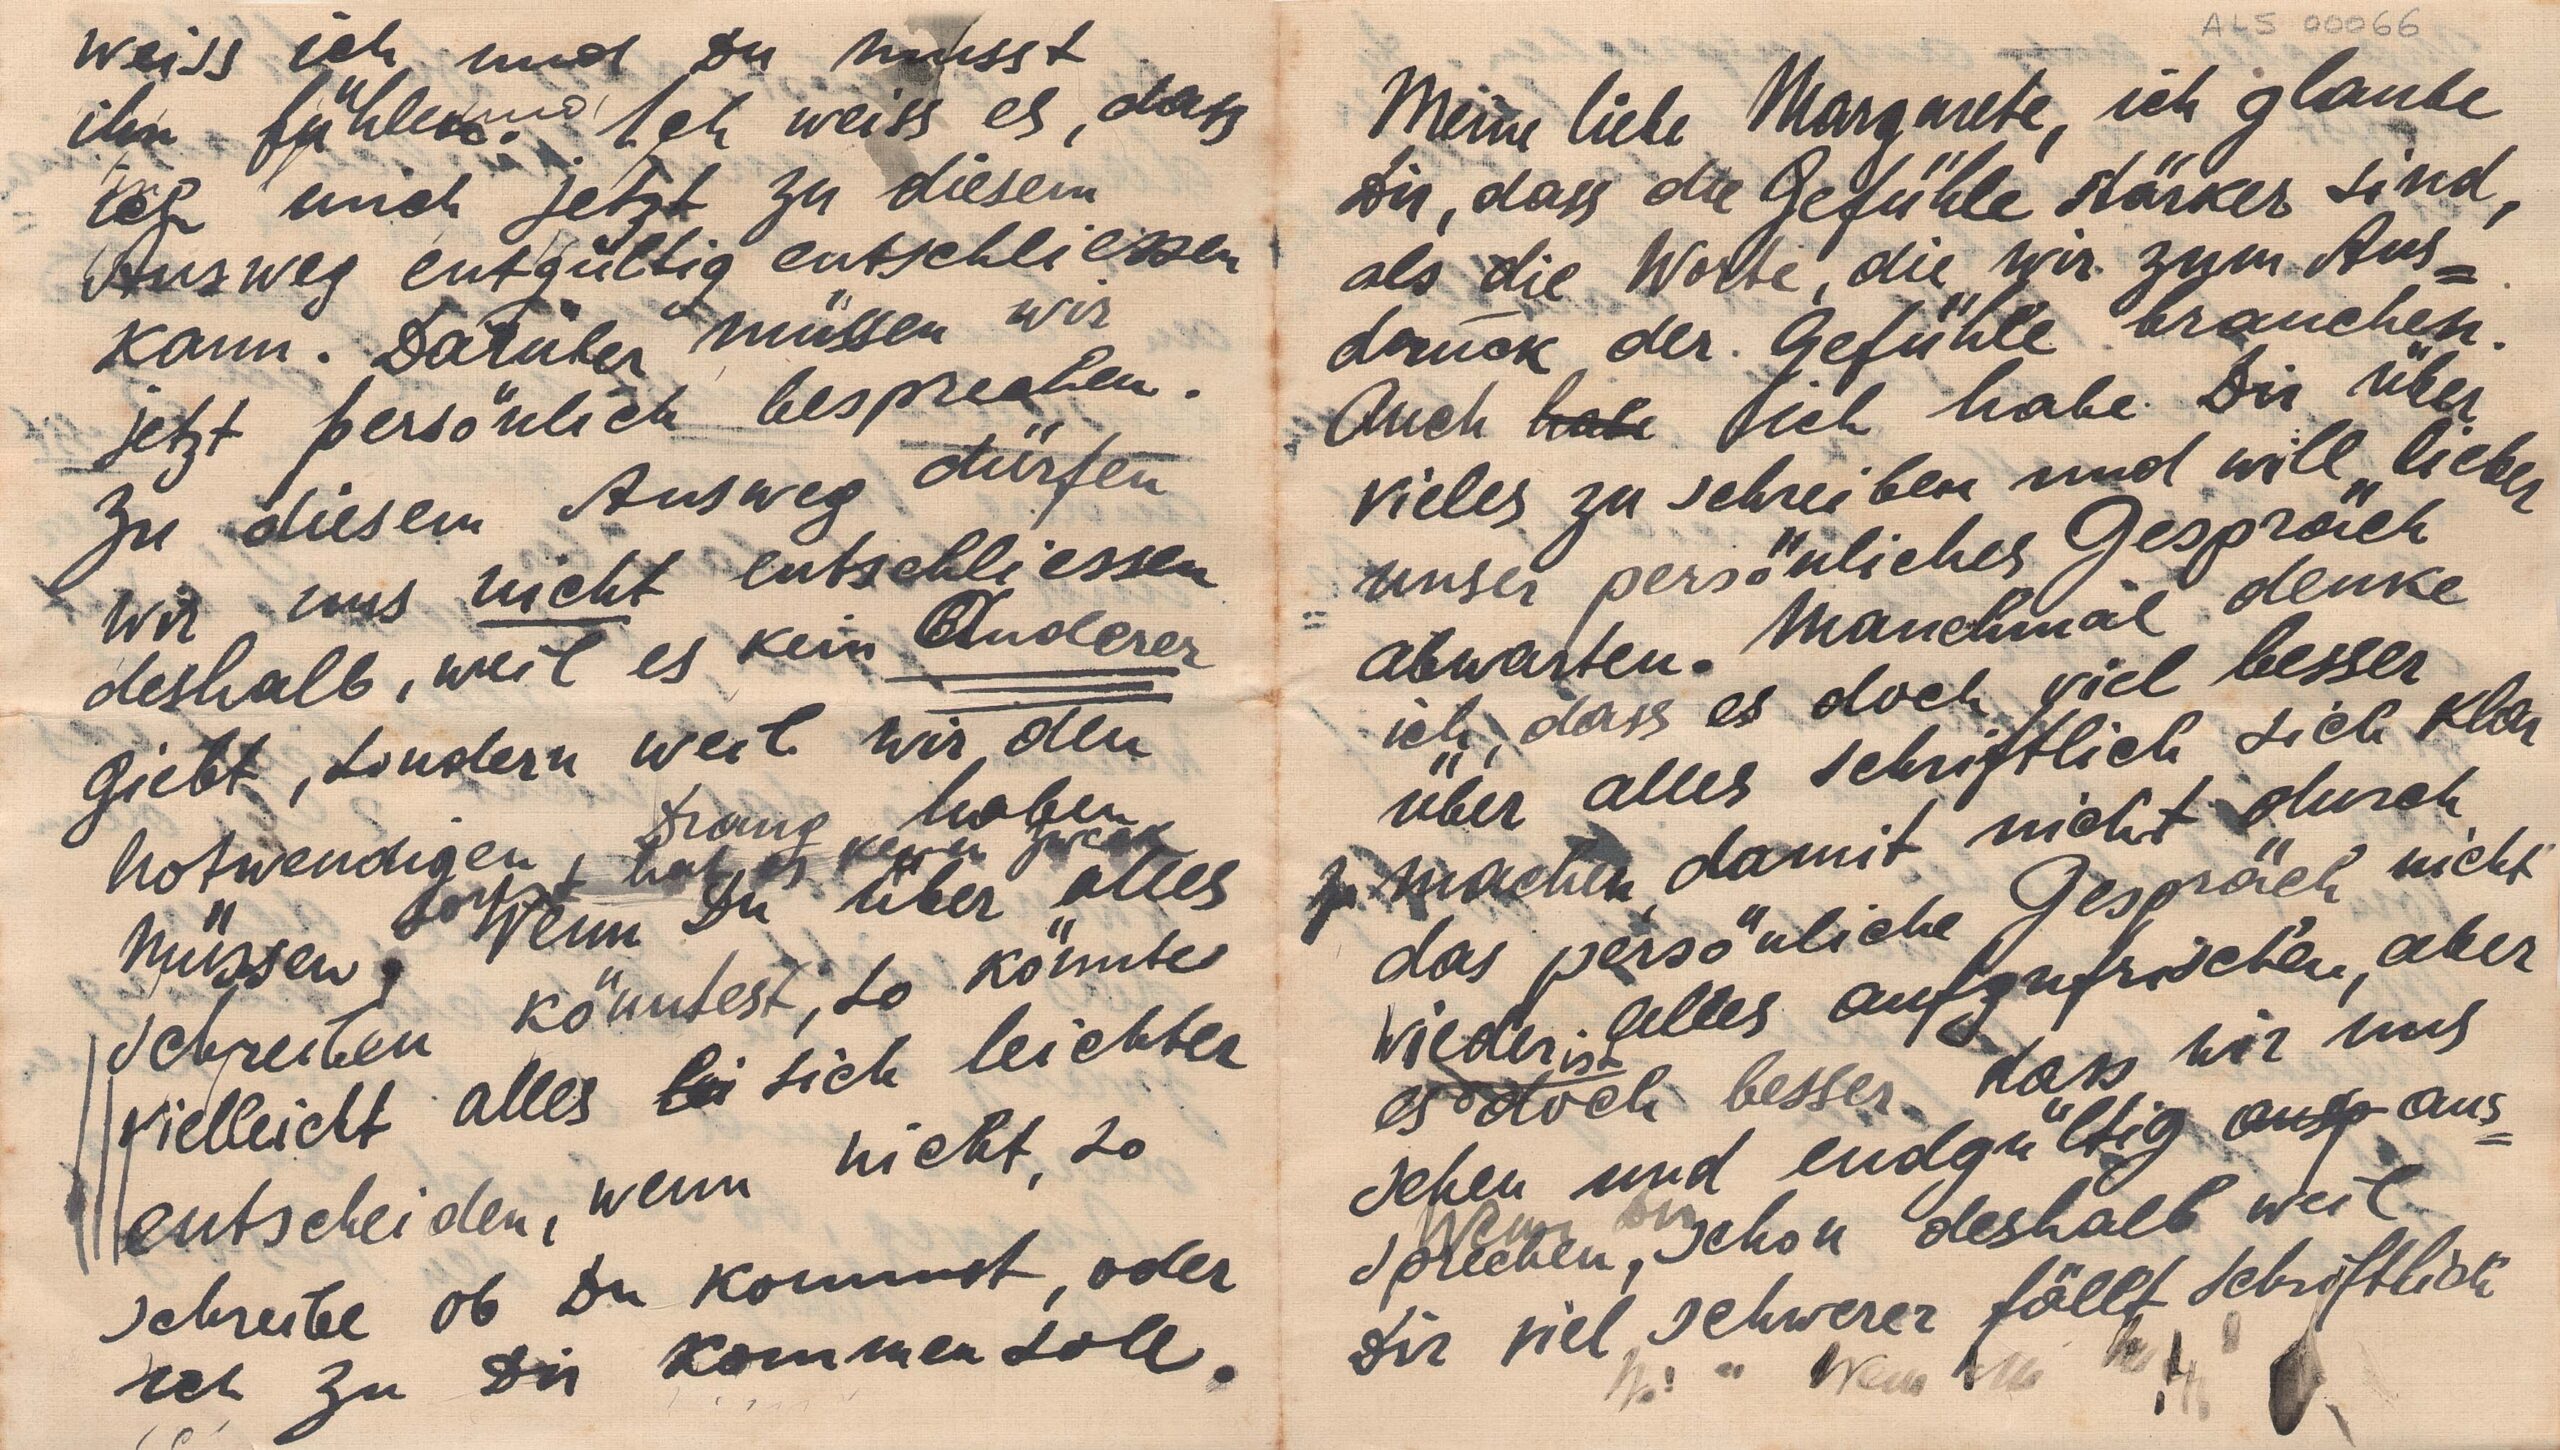 weiss ich und Du musst
ihn fühlen. und Ich weiss es, dass
ich mich jetzt zu diesem
Ausweg entgültig entschliessen
kann. Darüber müssen wir
jetzt persönlich besprechen.
Zu diesem Ausweg dürfen
wir uns nicht entschliessen
deshalb, weil es kein Anderer
giebt, sondern weil wir den
notwendigen Drang haben
müssen, sonst hat es keinen Zweck
Wenn Du über alles
schreiben könntest, so könnte
vielleicht alles bei sich leichter
entscheiden, wenn nicht, so
schreibe ob Du kommst, oder
ich zu Dir kommen soll.
ALS 00066
Meine liebe Margarete, ich glaube
Dir, dass die Gefühle stärker sind,
als die Worte, die wir zum Aus=
druck der Gefühle brauchen.
Auch habe ich habe Dir über
vieles zu schreiben und will lieber
unser persönliches Gespräch
abwarten. Manchmal denke
ich, dass es doch viel besser
über alles schriftlich sich klar
zu machen, damit nicht durch
das persönliche Gespräch nicht
wieder alles aufzufrischen, aber
es ist doch besser dass wir uns
sehen und endgültig ausp aus=
sprechen, schon deshalb weil
Wenn Du
Dir viel schwerer fällt schriftlich
Wenn